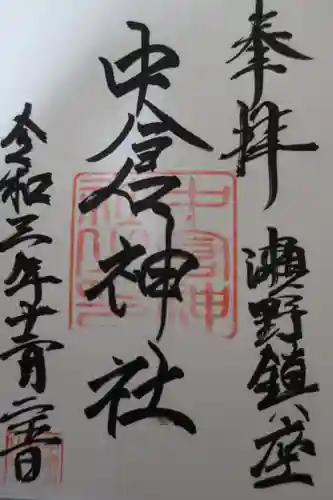 奉拝
瀬野鎮座
中倉神社
令和三年十一月二十一日